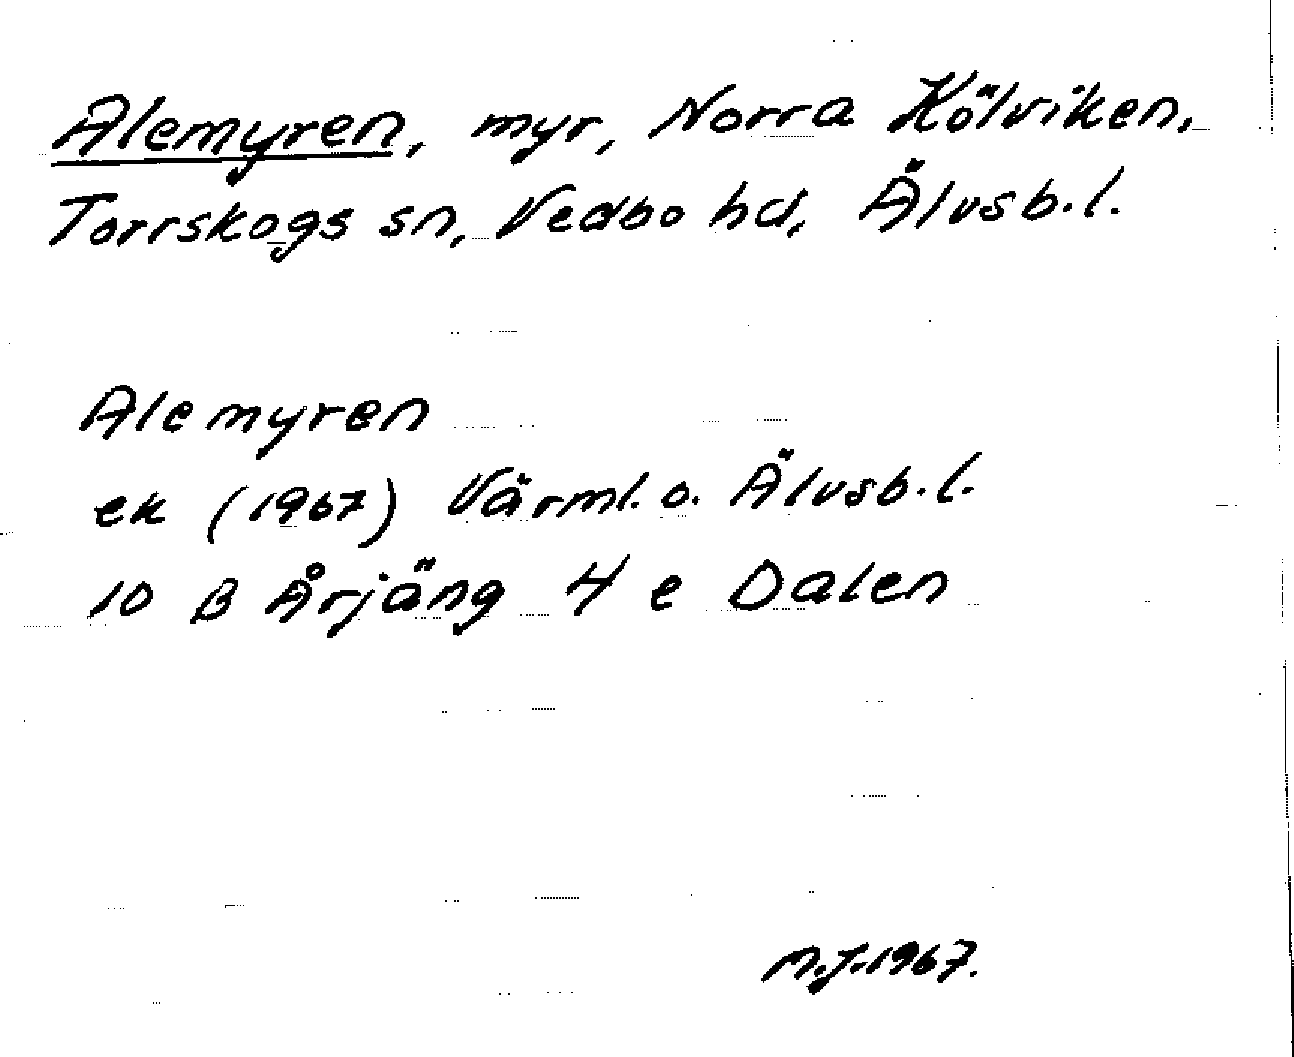 Alemyren, myr, Norra Kölviken,
Torrskogs sn, Vedbo hd, Älvsb. l.
Alemyren
ek (1967) Värml. o. Älvsb. l.
10 B Årjäng 4 e Dalen
M.J. 1967.